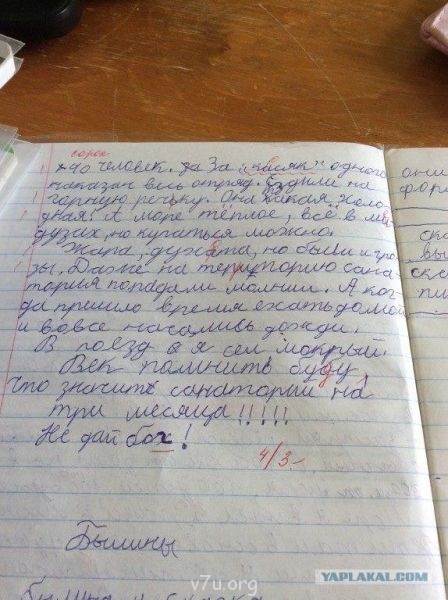 сорок
40 человек. за За "касяк" одного
наказан весь отряд. Ездили на
горную речьку. Она какая холо-
дная! А море тёплое, всё в ме
дузах, но купаться можно.
Жара, духата, но были и гро
зы. Даже на территорию сана-
тория попадали молнии. А ког-
да пришло время ехать домой
и вовсе начались дожди.
В поезд я сел мокрый.
Век помнить буду,
что значить санаторий на
три месяца!!!!!
Не дай бох!
4/3-
Былины
былина и сказка
они
фор
ско
вы
ске
пи
v7u.org
YAPLAKAL.COM